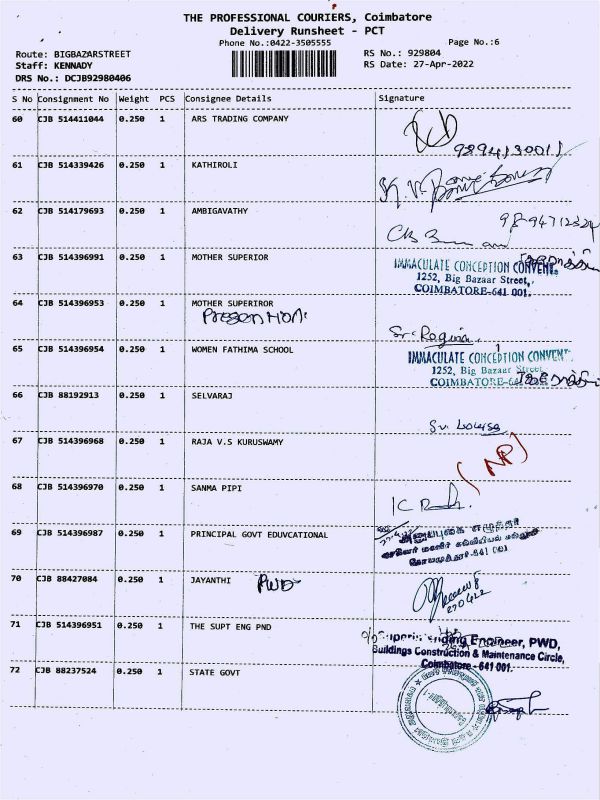 THE PROFESSIONAL COURIERS, Coimbatore
Delivery Runsheet - PCT
Phone No.:0422-3505555
Page No.:6
Route: BIGBAZARSTREET
RS No.: 929804
Staff: KENNADY
RS Date: 27-Apr-2022
DRS No.: DCJB92980406
S No Consignment No Weight PCS Consignee Details Signature
60 CJB 514411044 0.250 1 ARS TRADING COMPANY
61 CJB 514339426 0.250 1 KATHIROLI
62 CJB 514179693 0.250 1 AMBIGAVATHY
63 CJB 514396991 0.250 1 MOTHER SUPERIOR
IMMACULATE CONCEPTION CONVENT.
1252, Big Bazaar Street,
COIMBATORE-641 001.
64 CJB 514396953 0.250 1 MOTHER SUPERIROR
Presention.
Sr. Regina.
65 CJB 514396954 0.250 1 WOMEN FATHIMA SCHOOL
IMMACULATE CONCEPTION CONVENT
1252, Big Bazaar Street
COIMBATORE-641
66 CJB 88192913 0.250 1 SELVARAJ
Sr. Louisa
67 CJB 514396968 0.250 1 RAJA V.S KURUSWAMY
(NP)
68 CJB 514396970 0.250 1 SANMA PIPI
69 CJB 514396987 0.250 1 PRINCIPAL GOVT EDUVCATIONAL
70 CJB 88427084 0.250 1 JAYANTHI
PWD
270422
71 CJB 514396951 0.250 1 THE SUPT ENG PND
o/o Superintending Engineer, PWD,
Buildings Construction & Maintenance Circle,
Coimbatore - 641 001.
72 CJB 88237524 0.250 1 STATE GOVT